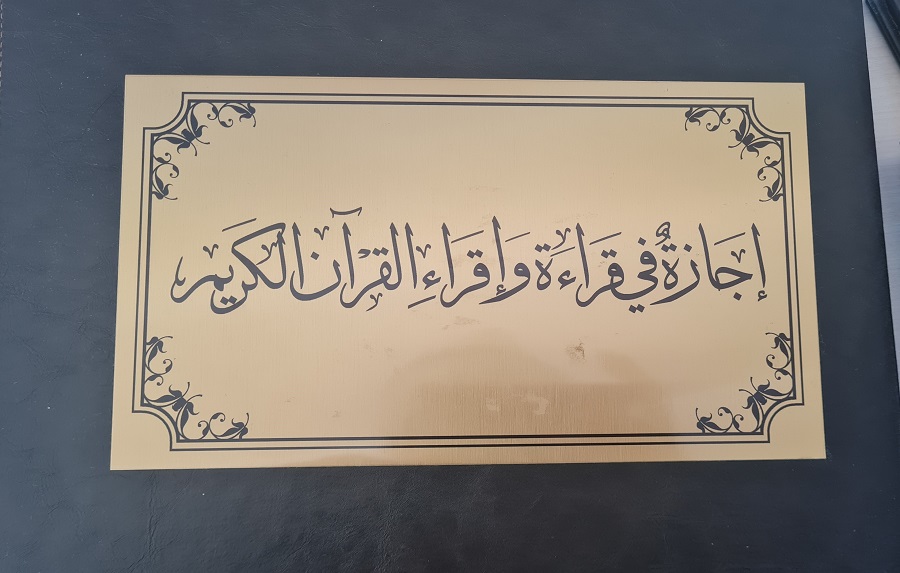 إجَازةٌ في قرَاءَة وَإقرَاءِ القرْآن الكريَم